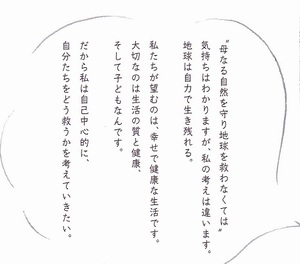 〝母なる自然を守り地球を救わなくては〟
気持ちはわかりますが、私の考えは違います。
地球は自力で生き残れる。
私たちが望むのは、幸せで健康な生活です。
大切なのは生活の質と健康、
そして子どもなんです。
だから私は自己中心的に、
自分たちをどう救うかを考えていきたい。